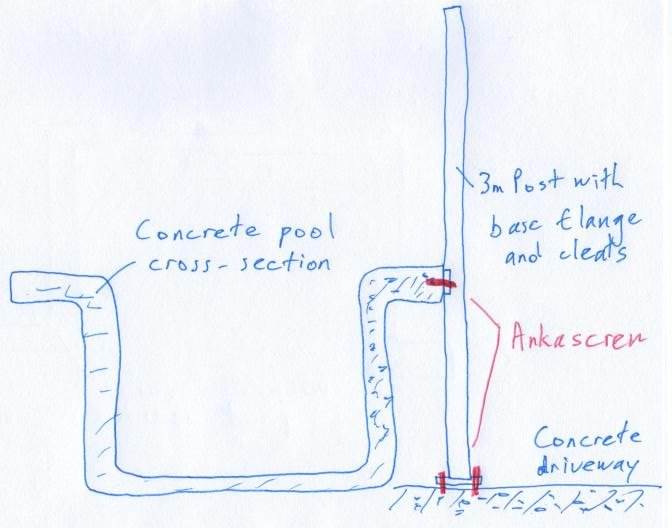 3m Post with
base flange
and cleats
Concrete pool
cross-section
Ankascrew
Concrete
driveway